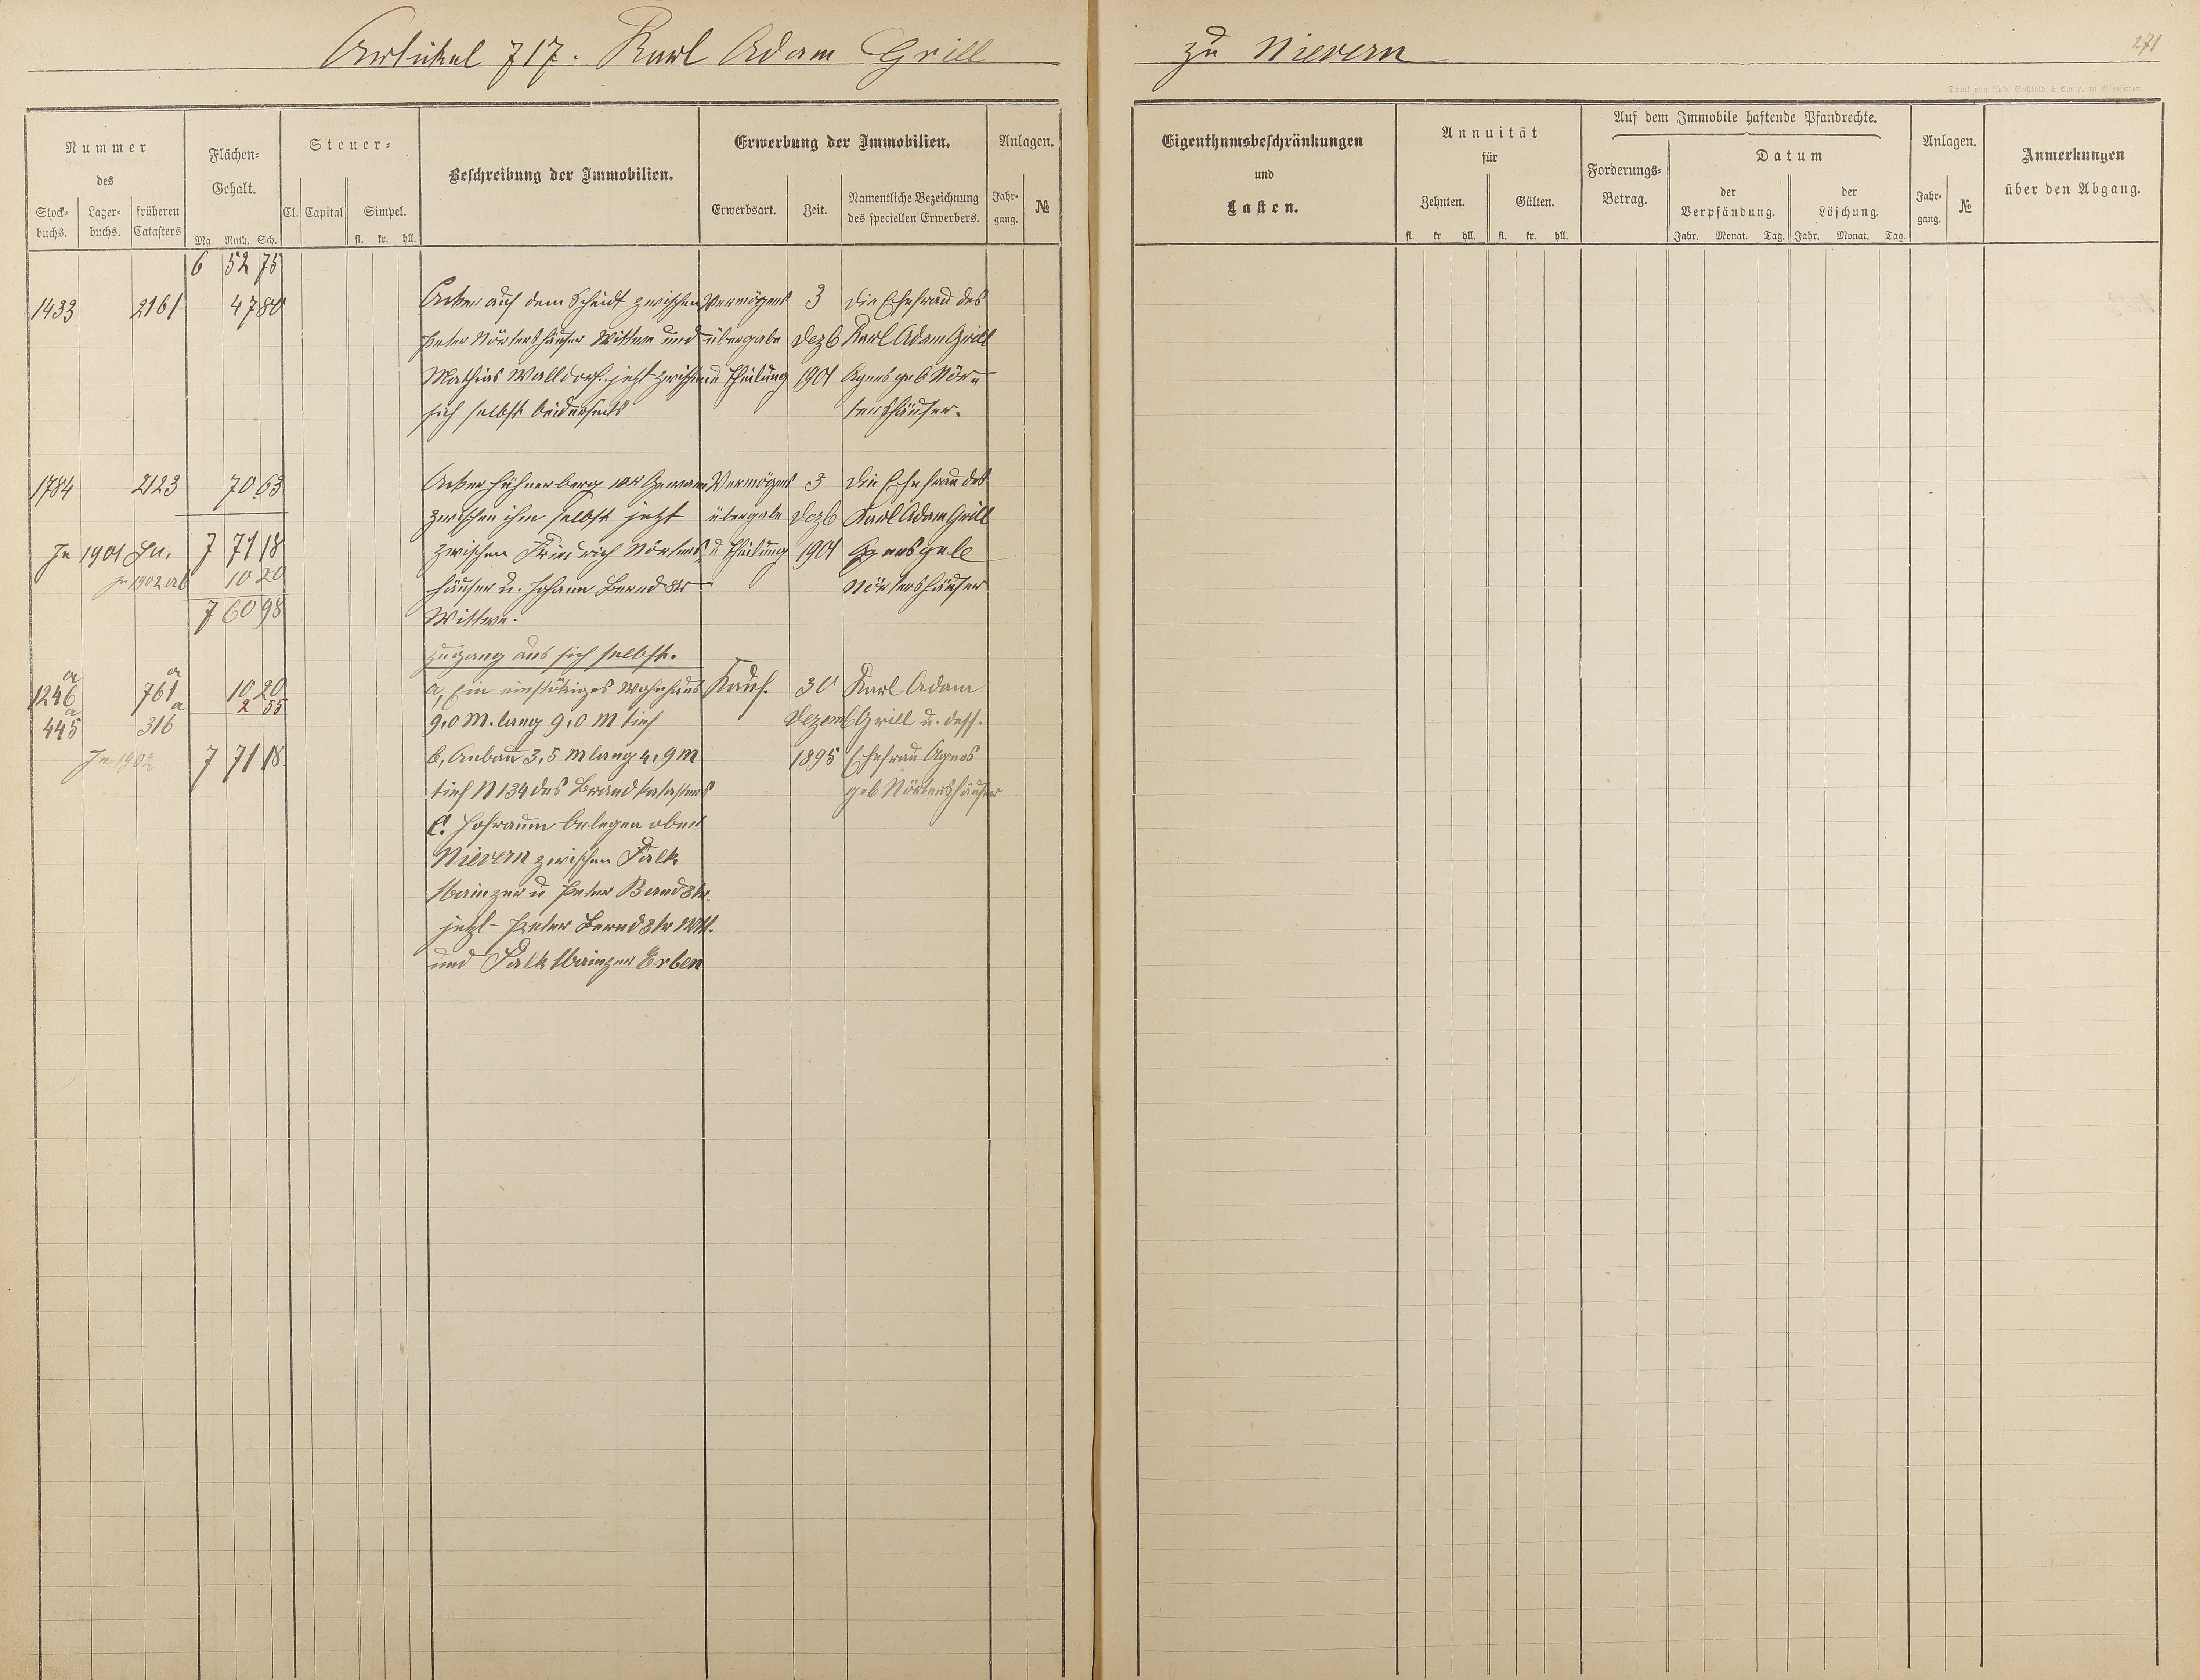 Artikel 717. Karl Adam Grill
zu Nievern
271
Druck von Rud. Bechtold & Comp. in Wiesbaden.
Nummer
des
Stock-
buchs.
Lager-
buchs.
früheren
Catasters
Flächen-
Gehalt.
Mg. Ruth. Sch.
Steuer-
Cl. Capital Simpel.
fl. kr. hll.
Beschreibung der Immobilien.
Erwerbung der Immobilien.
Erwerbsart.
Zeit.
Namentliche Bezeichnung
des speciellen Erwerbers.
Anlagen.
Jahr-
gang.
№
Eigenthumsbeschränkungen
und
Lasten.
Annuität
für
Zehnten. Gülten.
fl. kr. hll. fl. kr. hll.
Auf dem Immobile haftende Pfandrechte.
Forderungs-
Betrag.
Datum
der
Verpfändung.
der
Löschung.
Jahr. Monat. Tag. Jahr. Monat. Tag.
Anlagen.
Jahr-
gang.
№
Anmerkungen
über den Abgang.
6 52 75
1433 2161 47 80 Acker auf dem Scheidt zwischen Vermögens 3 die Ehefrau des
Peter Nörtershäuser Wittwe und übergabe Dezb Karl Adam Grill
Mathias Walldorf. jetzt zwischen u Theilung 1901 Agnes geb Nör-
sich selbst beiderseits tershäuser.
1784 2123 70 63 Acker Hühnerberg 1te Gewann Vermögens 3 die Ehefrau des
zwischen ihm selbst jetzt übergabe Dezb Karl Adam Grill
In 1901 7 71 18 zwischen Friedrich Nörters- u Theilung 1901 Agnes geb
In 1902 ab 10 20 häuser u. Johann Bernd Nörtershäuser
7 60 98 Wittwe.
Zugang aus sich selbst.
1246a 761a 10 20 a, Ein einstökiges Wohnhaus Kauf. 30 Karl Adam
2 55
445a 316a 9,0 M. lang 9,0 M tief Dezemb Grill u. dess.
In 1902 7 71 18 b, Anbau 3,5 M lang 4,9 M 1895 Ehefrau Agnes
tief N 134 des Brandkatasters geb Nörtershäuser
c. Hofraum belegen ober
Nievern zwischen Falk
Mainzer u Peter Bernd 3tr.
jetzt Peter Bernd 3tr Wtt.
und Falk Mainzer Erben